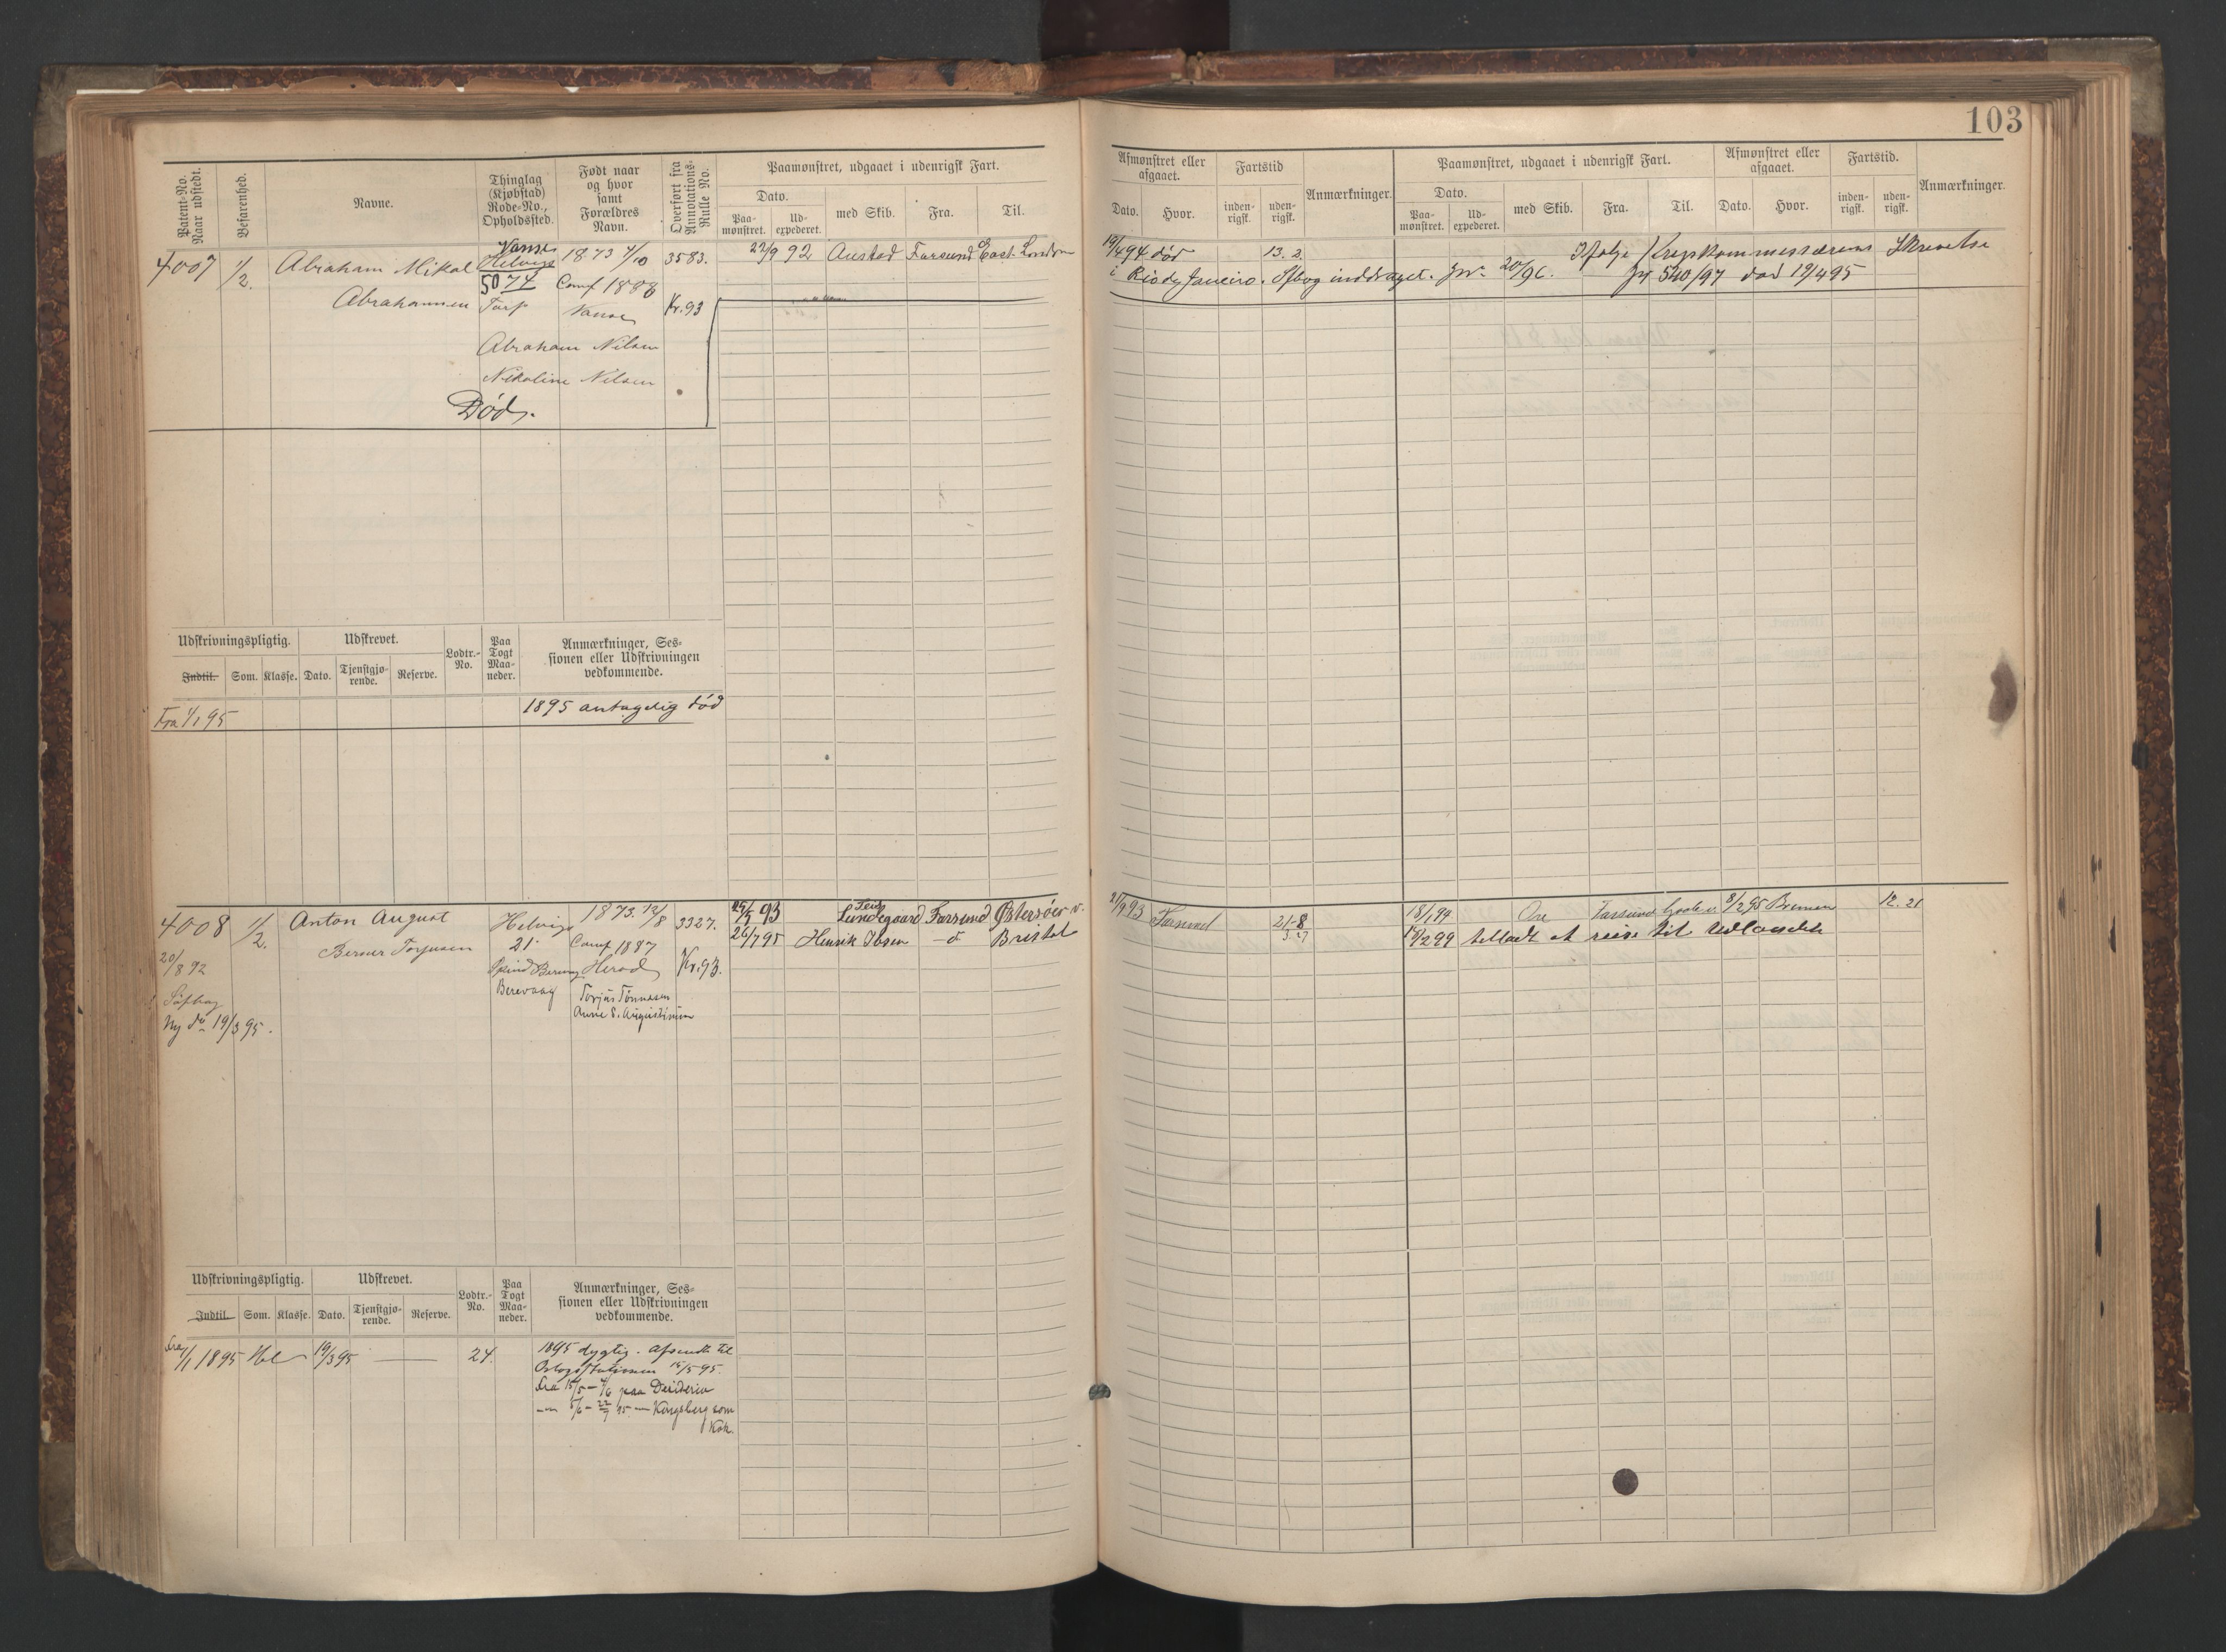 103
Patent-No. Naar udstedt.
Befarenhed.
Navne.
Thinglag (Kjøbstad) Rode-No., Opholdssted.
Født naar og hvor samt Forældres Navn.
Overført fra Annotations-Rulle No.
Paamønstret, udgaaet i udenrigsk Fart.
Dato.
Paa-mønstret. Ud-expederet. med Skib. Fra. Til.
Afmønstret eller afgaaet.
Dato. Hvor.
Fartstid
inden-rigsk. uden-rigsk.
Anmærkninger.
Paamønstret, udgaaet i udenrigsk Fart.
Dato.
Paa-mønstret. Ud-expederet. med Skib. Fra. Til.
Afmønstret eller afgaaet.
Dato. Hvor.
Fartstid.
inden-rigsk. uden-rigsk.
Anmærkninger.
4007 1/2. Abraham Mikal Vanse 1873 4/10 3583. 22/9 92 Austad Farsund East London
Helvig
Abrahamsen 5074 Conf 1888 Kr. 93
Tarp Vanse
Abraham Nilsen
Nikoline Nilsen
Død.
19/4 94 død 13. 2. Ifølge Krigskommissærens Skrivelse
i Rio de Janeiro. Sfbog inddraget. 20/96. 540/97 død 19/4 95
Udskrivningspligtig. Udskrevet. Lodtr.-No. Paa Togt Maa-neder. Anmærkninger, Ses-sionen eller Udskrivningen vedkommende.
Indtil. Som. Klasse. Dato. Tjenstgjø-rende. Reserve.
Fra 1/1 95 1895 antagelig død
4008 1/2. Anton August Helvig 1873. 12/8 3327. 93 Lundegaard Farsund Østersøen
Berner Torjusen 21 Conf 1887 Kr. 93. 26/7 95 Henrik Ibsen Bristol
20/8 92 Spind Herad
Berevaag Torjus Tønnesen
Søfbog Anne S. Augustinsen
Ny do 19/3 95.
21/9 93 Farsund 21-8 18/1 94 Farsund 8/2 95 Bremen 12. 21
2 99 tilladt at reise til Udlandet
Udskrivningspligtig. Udskrevet. Lodtr.-No. Paa Togt Maa-neder. Anmærkninger, Ses-sionen eller Udskrivningen vedkommende.
Indtil. Som. Klasse. Dato. Tjenstgjø-rende. Reserve.
Fra 1/1 1895 19/3 95 24. 1895 dygtig. Afsendt til
Orlogsstationen 15/5 95.
Fra 15/5 - 4/6 paa Desideria
5/6 - 22/9 95 Kongsberg som
Kok.